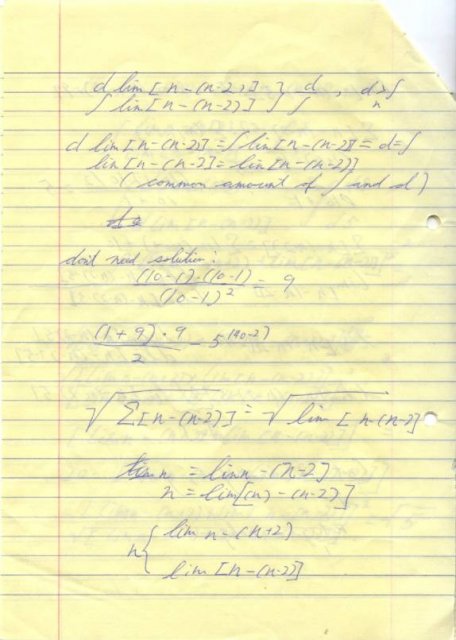 d lim [n-(n-2)] } d , d>∫
∫ lim [n-(n-2)] } ∫ n
d lim [n-(n-2)] = ∫ lim [n-(n-2)] = d=∫
lim [n-(n-2)] = lim [n-(n-2)]
(common amount of ∫ and d)
don't need solution:
(10-1)·(10-1) = 9
(10-1)²
(1+9)·9 - 5(10-2)
2
√Σ[n-(n-2)] = √lim [n-(n-2)]
n = lim n-(n-2]
n = lim[(n)-(n-2)]
n { lim n-(n+2)
lim [n-(n-2)]